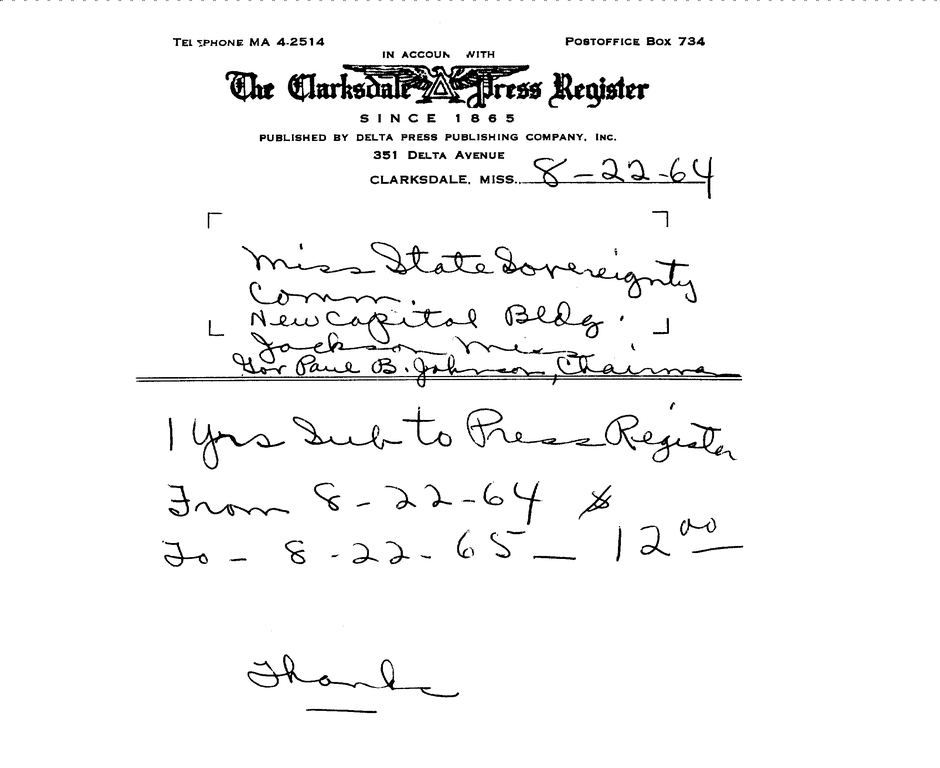 TELEPHONE MA 4-2514 POSTOFFICE BOX 734
IN ACCOUNT WITH
The Clarksdale Press Register
SINCE 1865
PUBLISHED BY DELTA PRESS PUBLISHING COMPANY, INC.
351 DELTA AVENUE
CLARKSDALE, MISS. 8-22-64
Miss State Sovereignty
Comm.
New Capitol Bldg.
Jackson Miss
Gov Paul B. Johnson, Chairman
1 Yrs Sub to Press Register
From 8-22-64 $
To - 8-22-65 — 12 00
Thanks